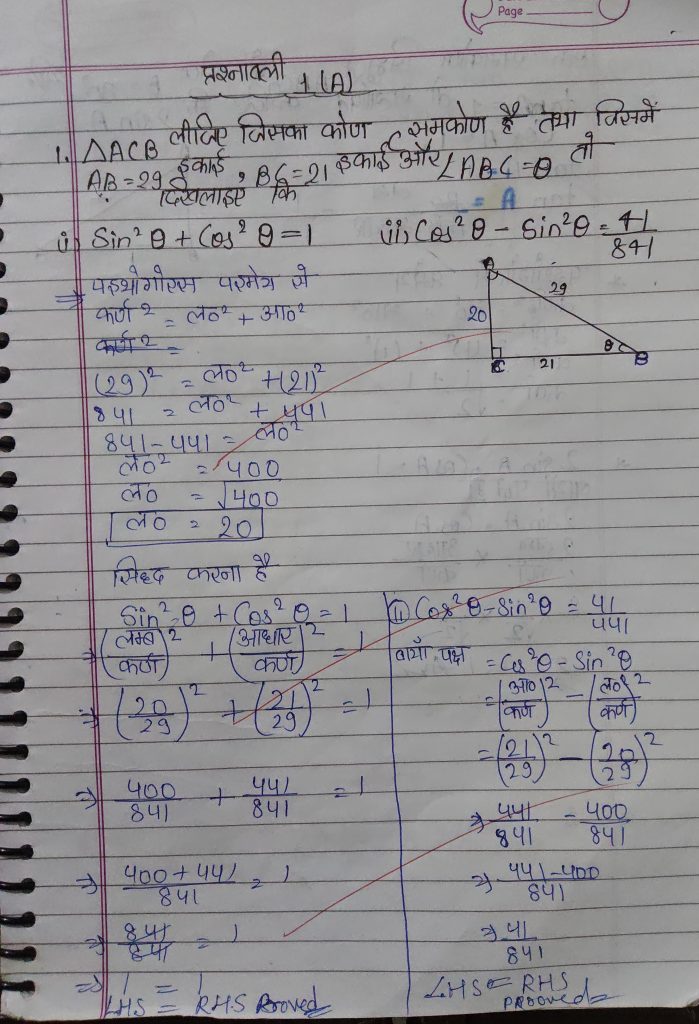 Page
प्रश्नावली 1(A)
1. △ACB लीजिए जिसका कोण C समकोण है तथा जिसमें
AB=29 इकाई, BC=21 इकाई और ∠ABC=θ तो
दिखलाइए कि
= A
i) Sin²θ + Cos²θ = 1
ii) Cos²θ - Sin²θ = 41/841
⇒ पइथागोरस परमेय से
कर्ण² = ल०² + आ०²
कर्ण² =
(29)² = ल०² + (21)²
841 = ल०² + 441
841 - 441 = ल०²
ल०² = 400
ल० = √400
ल० = 20
A
29
20
θ
C
21
B
सिद्द करना है
Sin²θ + Cos²θ = 1
⇒ (लम्ब/कर्ण)² + (आधार/कर्ण)² = 1
⇒ (20/29)² + (21/29)² = 1
⇒ 400/841 + 441/841 = 1
⇒ 400 + 441/841 = 1
⇒ 841/841 = 1
⇒ 1 = 1
LHS = RHS Prooved
ii) Cos²θ - Sin²θ = 41/441
बायाँ पक्ष = Cos²θ - Sin²θ
= (आ०/कर्ण)² - (ल०/कर्ण)²
= (21/29)² - (20/29)²
⇒ 441/841 - 400/841
⇒ 441-400/841
⇒ 41/841
LHS = RHS
prooved